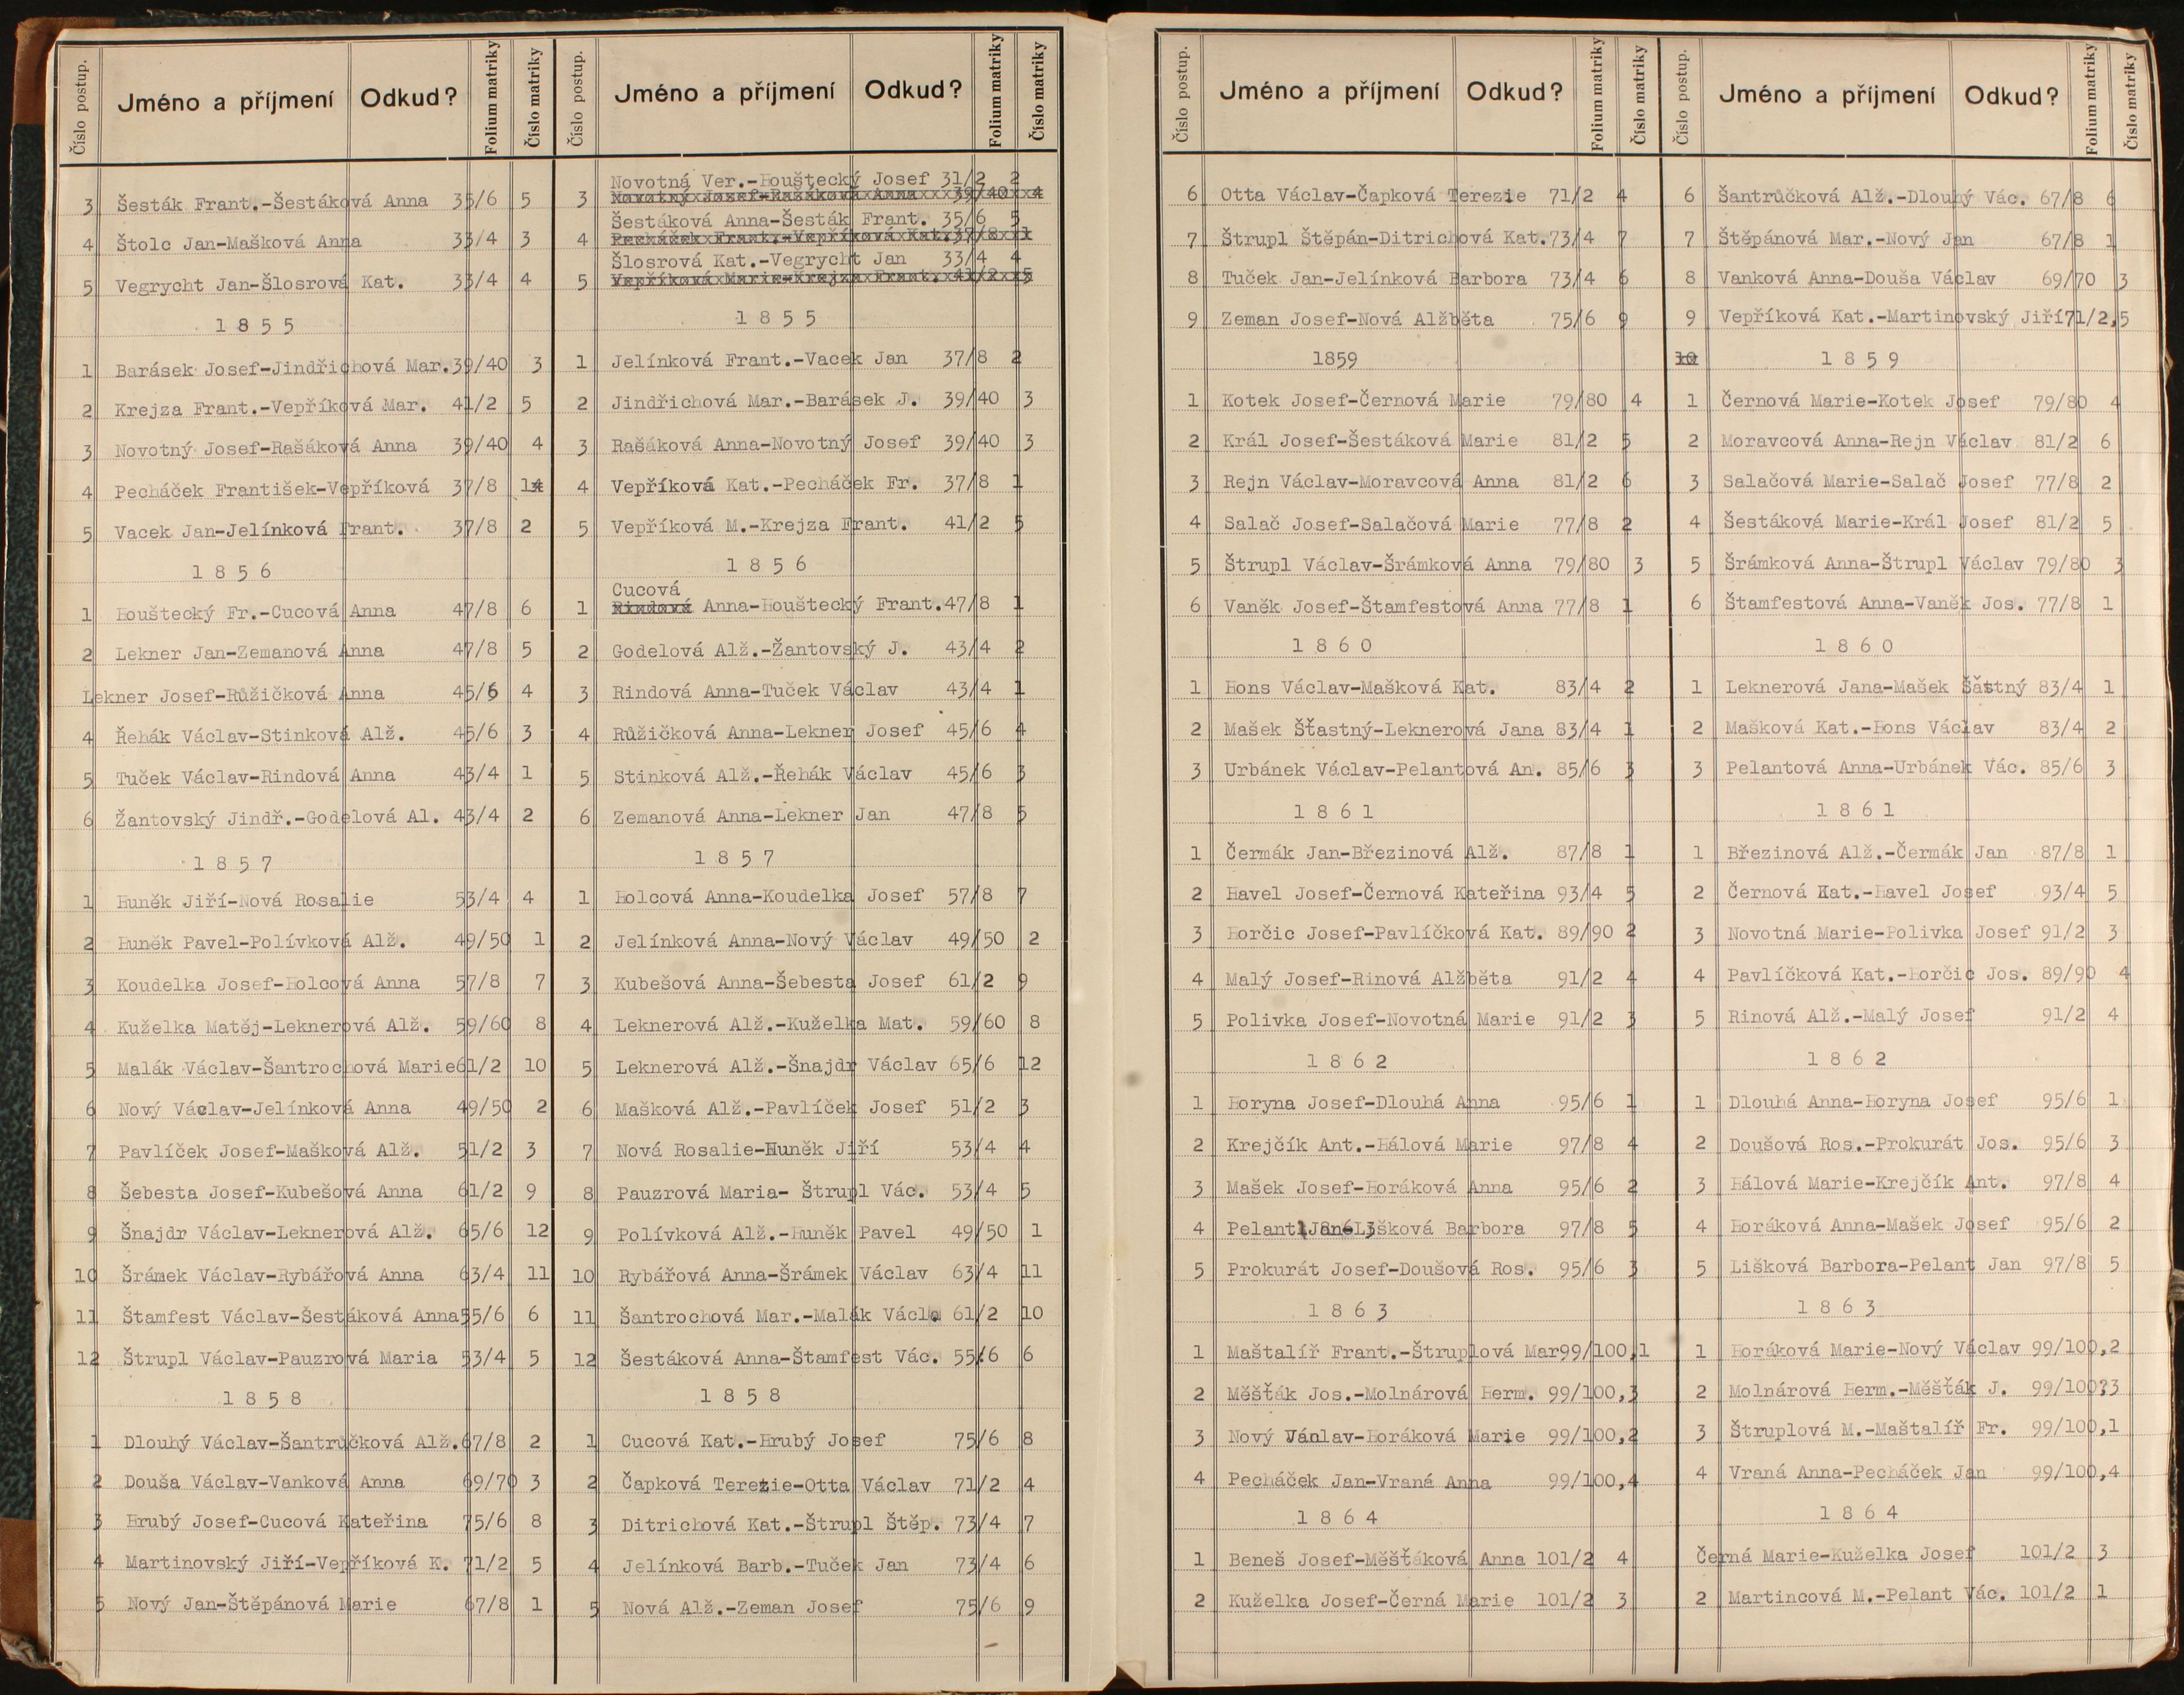 Číslo postup. Jméno a příjmení Odkud? Folium matriky Číslo matriky
3 Šesták Frant.-Šestáková Anna 35/6 5
4 Štolc Jan-Mašková Anna 33/4 3
5 Vegrycht Jan-Šlosrová Kat. 33/4 4
1855
1 Barásek Josef-Jindřichová Mar. 39/40 3
2 Krejza Frant.-Vepříková Mar. 41/2 5
3 Novotný Josef-Rašáková Anna 39/40 4
4 Pecháček František-Vepříková 37/8 1
5 Vacek Jan-Jelínková Frant. 37/8 2
1856
1 Houštecký Fr.-Cucová Anna 47/8 6
2 Lekner Jan-Zemanová Anna 47/8 5
Lekner Josef-Růžičková Anna 45/6 4
4 Řehák Václav-Stinková Alž. 45/6 3
5 Tuček Václav-Rindová Anna 43/4 1
6 Žantovský Jindř.-Godelová Al. 43/4 2
1857
1 Huněk Jiří-Nová Rosalie 53/4 4
2 Huněk Pavel-Polívková Alž. 49/50 1
3 Koudelka Josef-Holcová Anna 57/8 7
4 Kuželka Matěj-Leknerová Alž. 59/60 8
5 Malák Václav-Šantrochová Marie 61/2 10
6 Nový Václav-Jelínková Anna 49/50 2
7 Pavlíček Josef-Mašková Alž. 51/2 3
8 Šebesta Josef-Kubešová Anna 61/2 9
9 Šnajdr Václav-Leknerová Alž. 65/6 12
10 Šrámek Václav-Rybářová Anna 63/4 11
11 Štamfest Václav-Šestáková Anna 55/6 6
12 Štrupl Václav-Pauzrová Maria 53/4 5
1858
1 Dlouhý Václav-Šantrůčková Alž. 67/8 2
2 Douša Václav-Vanková Anna 69/70 3
3 Hrubý Josef-Cucová Kateřina 75/6 8
4 Martinovský Jiří-Vepříková K. 71/2 5
5 Nový Jan-Štěpánová Marie 67/8 1
Číslo postup. Jméno a příjmení Odkud? Folium matriky Číslo matriky
Novotná Ver.-Houštecký Josef 31/2 2
3 Novotný Josef-Rašáková Anna 39/40 4
Šestáková Anna-Šesták Frant. 35/6 5
4 Pecháček Frant.-Vepříková Kat. 37/8 1
Šlosrová Kat.-Vegrycht Jan 33/4 4
5 Vepříková Marie-Krejza Frant. 41/2 5
1855
1 Jelínková Frant.-Vacek Jan 37/8 2
2 Jindřichová Mar.-Barásek J. 39/40 3
3 Rašáková Anna-Novotný Josef 39/40 3
4 Vepříková Kat.-Pecháček Fr. 37/8 1
5 Vepříková M.-Krejza Frant. 41/2 5
1856
Cucová
1 Rindová Anna-Houštecký Frant. 47/8 1
2 Godelová Alž.-Žantovský J. 43/4 2
3 Rindová Anna-Tuček Václav 43/4 1
4 Růžičková Anna-Lekner Josef 45/6 4
5 Stinková Alž.-Řehák Václav 45/6 3
6 Zemanová Anna-Lekner Jan 47/8 5
1857
1 Holcová Anna-Koudelka Josef 57/8 7
2 Jelínková Anna-Nový Václav 49/50 2
3 Kubešová Anna-Šebesta Josef 61/2 9
4 Leknerová Alž.-Kuželka Mat. 59/60 8
5 Leknerová Alž.-Šnajdr Václav 65/6 12
6 Mašková Alž.-Pavlíček Josef 51/2 3
7 Nová Rosalie-Huněk Jiří 53/4 4
8 Pauzrová Maria- Štrupl Vác. 53/4 5
9 Polívková Alž.-Huněk Pavel 49/50 1
10 Rybářová Anna-Šrámek Václav 63/4 11
11 Šantrochová Mar.-Malák Václ. 61/2 10
12 Šestáková Anna-Štamfest Vác. 55/6 6
1858
1 Cucová Kat.-Hrubý Josef 75/6 8
2 Čapková Terezie-Otta Václav 71/2 4
3 Ditrichová Kat.-Štrupl Štěp. 73/4 7
4 Jelínková Barb.-Tuček Jan 73/4 6
5 Nová Alž.-Zeman Josef 75/6 9
Číslo postup. Jméno a příjmení Odkud? Folium matriky Číslo matriky
6 Otta Václav-Čapková Terezie 71/2 4
7 Štrupl Štěpán-Ditrichová Kat. 73/4 7
8 Tuček Jan-Jelínková Barbora 73/4 6
9 Zeman Josef-Nová Alžběta 75/6 9
1859
1 Kotek Josef-Černová Marie 79/80 4
2 Král Josef-Šestáková Marie 81/2 5
3 Rejn Václav-Moravcová Anna 81/2 6
4 Salač Josef-Salačová Marie 77/8 2
5 Štrupl Václav-Šrámková Anna 79/80 3
6 Vaněk Josef-Štamfestová Anna 77/8 1
1860
1 Hons Václav-Mašková Kat. 83/4 2
2 Mašek Šťastný-Leknerová Jana 83/4 1
3 Urbánek Václav-Pelantová An. 85/6 3
1861
1 Čermák Jan-Březinová Alž. 87/8 1
2 Havel Josef-Černová Kateřina 93/4 5
3 Horčic Josef-Pavlíčková Kat. 89/90 2
4 Malý Josef-Rinová Alžběta 91/2 4
5 Polivka Josef-Novotná Marie 91/2 3
1862
1 Horyna Josef-Dlouhá Anna 95/6 1
2 Krejčík Ant.-Hálová Marie 97/8 4
3 Mašek Josef-Horáková Anna 95/6 2
4 Pelant Jan-Lišková Barbora 97/8 5
5 Prokurát Josef-Doušová Ros. 95/6 3
1863
1 Maštalíř Frant.-Štruplová Mar 99/100,1
2 Měšťák Jos.-Molnárová Herm. 99/100,3
3 Nový Vánlav-Horáková Marie 99/100,2
4 Pecháček Jan-Vraná Anna 99/100,4
1864
1 Beneš Josef-Měšťáková Anna 101/2 4
2 Kuželka Josef-Černá Marie 101/2 3
Číslo postup. Jméno a příjmení Odkud? Folium matriky Číslo matriky
6 Šantrůčková Alž.-Dlouhý Vác. 67/8 6
7 Štěpánová Mar.-Nový Jan 67/8 1
8 Vanková Anna-Douša Václav 69/70 3
9 Vepříková Kat.-Martinovský Jiří 71/2,5
10 1859
1 Černová Marie-Kotek Josef 79/80 4
2 Moravcová Anna-Rejn Václav 81/2 6
3 Salačová Marie-Salač Josef 77/8 2
4 Šestáková Marie-Král Josef 81/2 5
5 Šrámková Anna-Štrupl Václav 79/80 3
6 Štamfestová Anna-Vaněk Jos. 77/8 1
1860
1 Leknerová Jana-Mašek Šťastný 83/4 1
2 Mašková Kat.-Hons Václav 83/4 2
3 Pelantová Anna-Urbánek Vác. 85/6 3
1861
1 Březinová Alž.-Čermák Jan 87/8 1
2 Černová Kat.-Havel Josef 93/4 5
3 Novotná Marie-Polivka Josef 91/2 3
4 Pavlíčková Kat.-Horčic Jos. 89/90 4
5 Rinová Alž.-Malý Josef 91/2 4
1862
1 Dlouhá Anna-Horyna Josef 95/6 1
2 Doušová Ros.-Prokurát Jos. 95/6 3
3 Hálová Marie-Krejčík Ant. 97/8 4
4 Horáková Anna-Mašek Josef 95/6 2
5 Lišková Barbora-Pelant Jan 97/8 5
1863
1 Horáková Marie-Nový Václav 99/100,2
2 Molnárová Herm.-Měšťák J. 99/100?3
3 Štruplová M.-Maštalíř Fr. 99/100,1
4 Vraná Anna-Pecháček Jan 99/100,4
1864
Černá Marie-Kuželka Josef 101/2 3
2 Martincová M.-Pelant Vác. 101/2 1